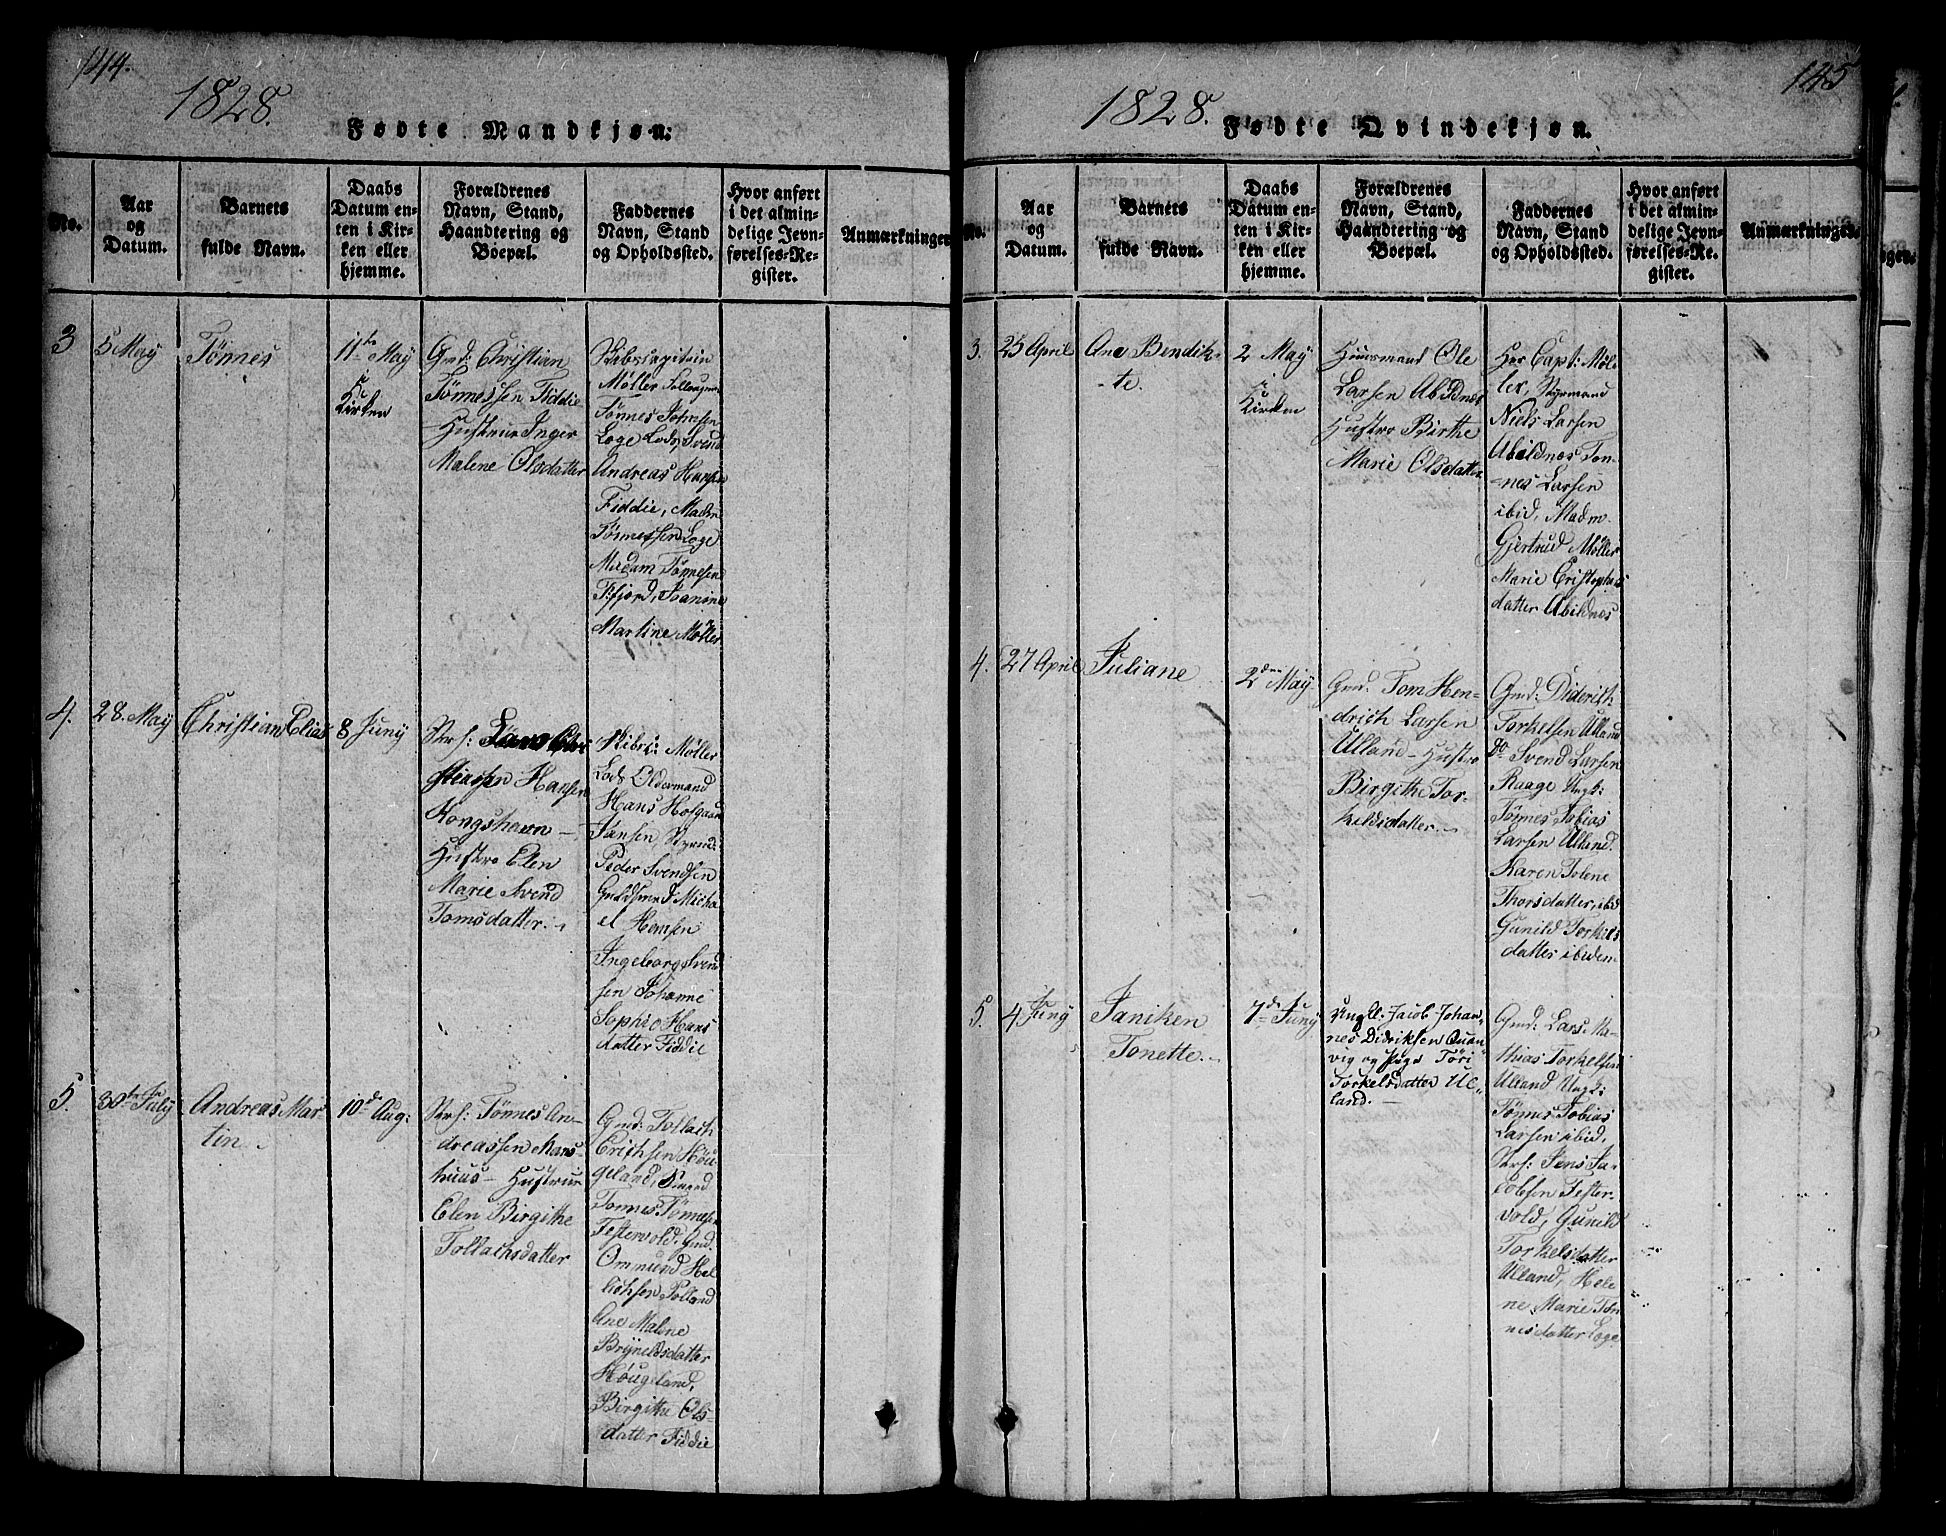 144.
1828.
Fødte Mandkjøn.
No.
Aar
og
Datum.
Barnets
fulde Navn.
Daabs
Datum en-
ten i Kir-
ken eller
hjemme.
Forældrenes
Navn, Stand,
Haandtering og
Boepæl.
Faddernes
Navn, Stand
og Opholdssted.
Hvor anført
i det almin-
delige Jevn-
førelses-Re-
gister.
Anmærkninger
3
5 May
Tønnes
11te May
i
Kirken
Gmd: Christian
Tønnessen Fiddie
Hustrue Inger
Malene Olsdatter
Møller
Tønnes Johnsen
Loge Lods, Svend
Andreas Hansen
Fiddie, Madm
Tønnessen Loge
Madam Tønnesen
Ffjord, Joanine
Martine Møller
4.
28. May
Christian Elias
8 Juny
Str f:
Hansen
Kongshavn –
Hustro Elen
Marie Svend
Tomsdatter.
Skibs: Møller
Lods Oldermand
Hans Hofgaar
Jansen, Styrmd:
Peder Svendsen
Guldsmed Micha
el Hemsen
Ingeborg Svend
sen Johanne
Sophie Hans
datter Fiddie
5.
30te July
Andreas Mar
tin
10de Aug:
Str f: Tønnes An-
dreassen Mons
huus – Hustrue
Elen Birgithe
Tollachsdatter
Gmd: Tollach
Erichsen Høu
geland,
Tonnes Tønnesen
Festervold, Gmd.
Ommund Hel
lichsen Tolland
Ane Malene
Brÿnildsdatter
Høugeland,
Birgithe Ols-
datter Fiddie
145
1828.
Fødte Qvindekjøn.
No.
Aar
og
Datum.
Barnets
fulde Navn.
Daabs
Datum en-
ten i Kir-
ken eller
hjemme.
Forældrenes
Navn, Stand,
Haandtering og
Boepæl.
Faddernes
Navn, Stand
og Opholdssted.
Hvor anført
i det almin-
delige Jevn-
førelses-Re-
gister.
Anmærkninger.
3.
25 April
Ane Bendik-
-te.
2 May
i
Kirken
Huusmand Ole
Larsen Abildnes
Hustro Birthe
Marie Olsdatter
Her Capt: Møl-
ler, Styrmand
Niels Larsen
Abildnes Ton-
nes Larsen
ibid, Madm.
Gjertrud Møller
Marie Cristophers
datter Abildnes
4.
27 April
Juliane
2den May
Gmd: Tom Hen-
drich Larsen
Ulland – Hustro
Birgithe Tor-
kelsdatter. –
Gmd: Diderich
Torkelsen Ulland
Do Svend Larsen
Raage Ungk:
Tønnes Tobias
Larsen Ulland.
Karen Tolene
Thorsdatter, ibid
Gunild Torkels
datter ibidem
5.
4 Juny
Janiken
Tonette. –
7de Juny
Ungk: Jacob Johan-
nes Didriksen Quan
vig og Pige Tøri
Torkelsdatter Ul-
land. –
Gmd: Lars Ma-
thias Torkelsen
Ulland Ungk:
Tønnes Tobias
Larsen ibid,
Str f: Jens Ja-
cobsen Fester-
vold, Gunild
Torkelsdatter
Ulland, Hele
ne Marie Tøn
nesdatter Loge